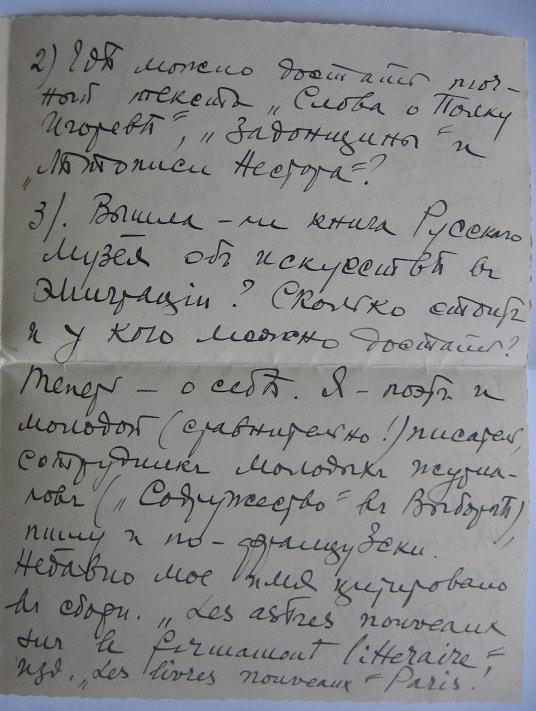 2) Гдѣ можно достать точ-
ный текстъ „Слова о Полку
Игоревѣ", „Задонщины" и
„Лѣтописи Нестора"?
3). Вышла-ли книга Русскаго
Музея объ искусствѣ въ
Эмиграціи? Сколько стоитъ
и у кого можно достать?
Теперь – о себѣ. Я – поэтъ и
молодой (сравнительно!) писатель,
сотрудникъ молодыхъ журна-
ловъ („Содружество" въ Выборгѣ),
пишу и по-французски.
Недавно мое имя цитировано
въ сборн. „Les astres nouveaux
sur le firmament litteraire",
изд. „Les livres nouveaux" Paris.